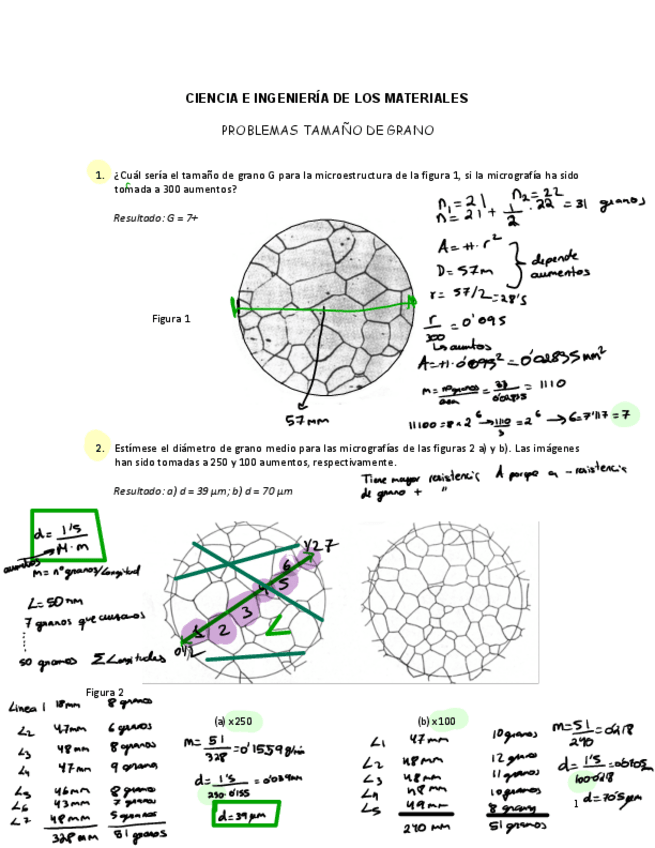 CIENCIA E INGENIERÍA DE LOS MATERIALES
PROBLEMAS TAMAÑO DE GRANO
1. ¿Cuál sería el tamaño de grano G para la microestructura de la figura 1, si la micrografía ha sido
tomada a 300 aumentos?
n₁ = 21 n₂ = 22
n = 21 + 1/2 · 22 = 31 granos
Resultado: G = 7+
A = π · r²
D = 57m
depende
aumentos
r = 57/2 = 28'5
Figura 1
r/300 = 0'095
Los aumentos
A = π · 0'095² = 0'02835 mm²
= 1110
57 mm
2. Estímese el diámetro de grano medio para las micrografías de las figuras 2 a) y b). Las imágenes
han sido tomadas a 250 y 100 aumentos, respectivamente.
Tiene mayor resistencia A porque
de grano + "
Resultado: a) d = 39 μm; b) d = 70 μm
d = 1'5 / M · m
aumentos
m = nº granos/Longitud
L = 50 mm
7 granos que
50 granos Σ Longitudes
1 2 3 4 5 6
L
Figura 2
(a) x250
(b) x100
Linea 1 18mm 8 granos
L2 47mm 6 granos
L3 48mm 8 granos
L4 47mm 9 granos
L5 46mm 8 granos
L6 43mm 7 granos
L7 48mm 5 granos
328 mm 51 granos
m = 51/328 = 0'1559
d = 1'5 / 250 · 0'155 = 0'039mm
d = 39 μm
L1 47 mm 10 granos
L2 48mm 12 granos
L3 48mm 11 granos
L4 48mm 10 granos
L5 49mm 8 granos
240 mm 51 granos
m = 51/240
d = 1'5
d = 70'5 μm
1